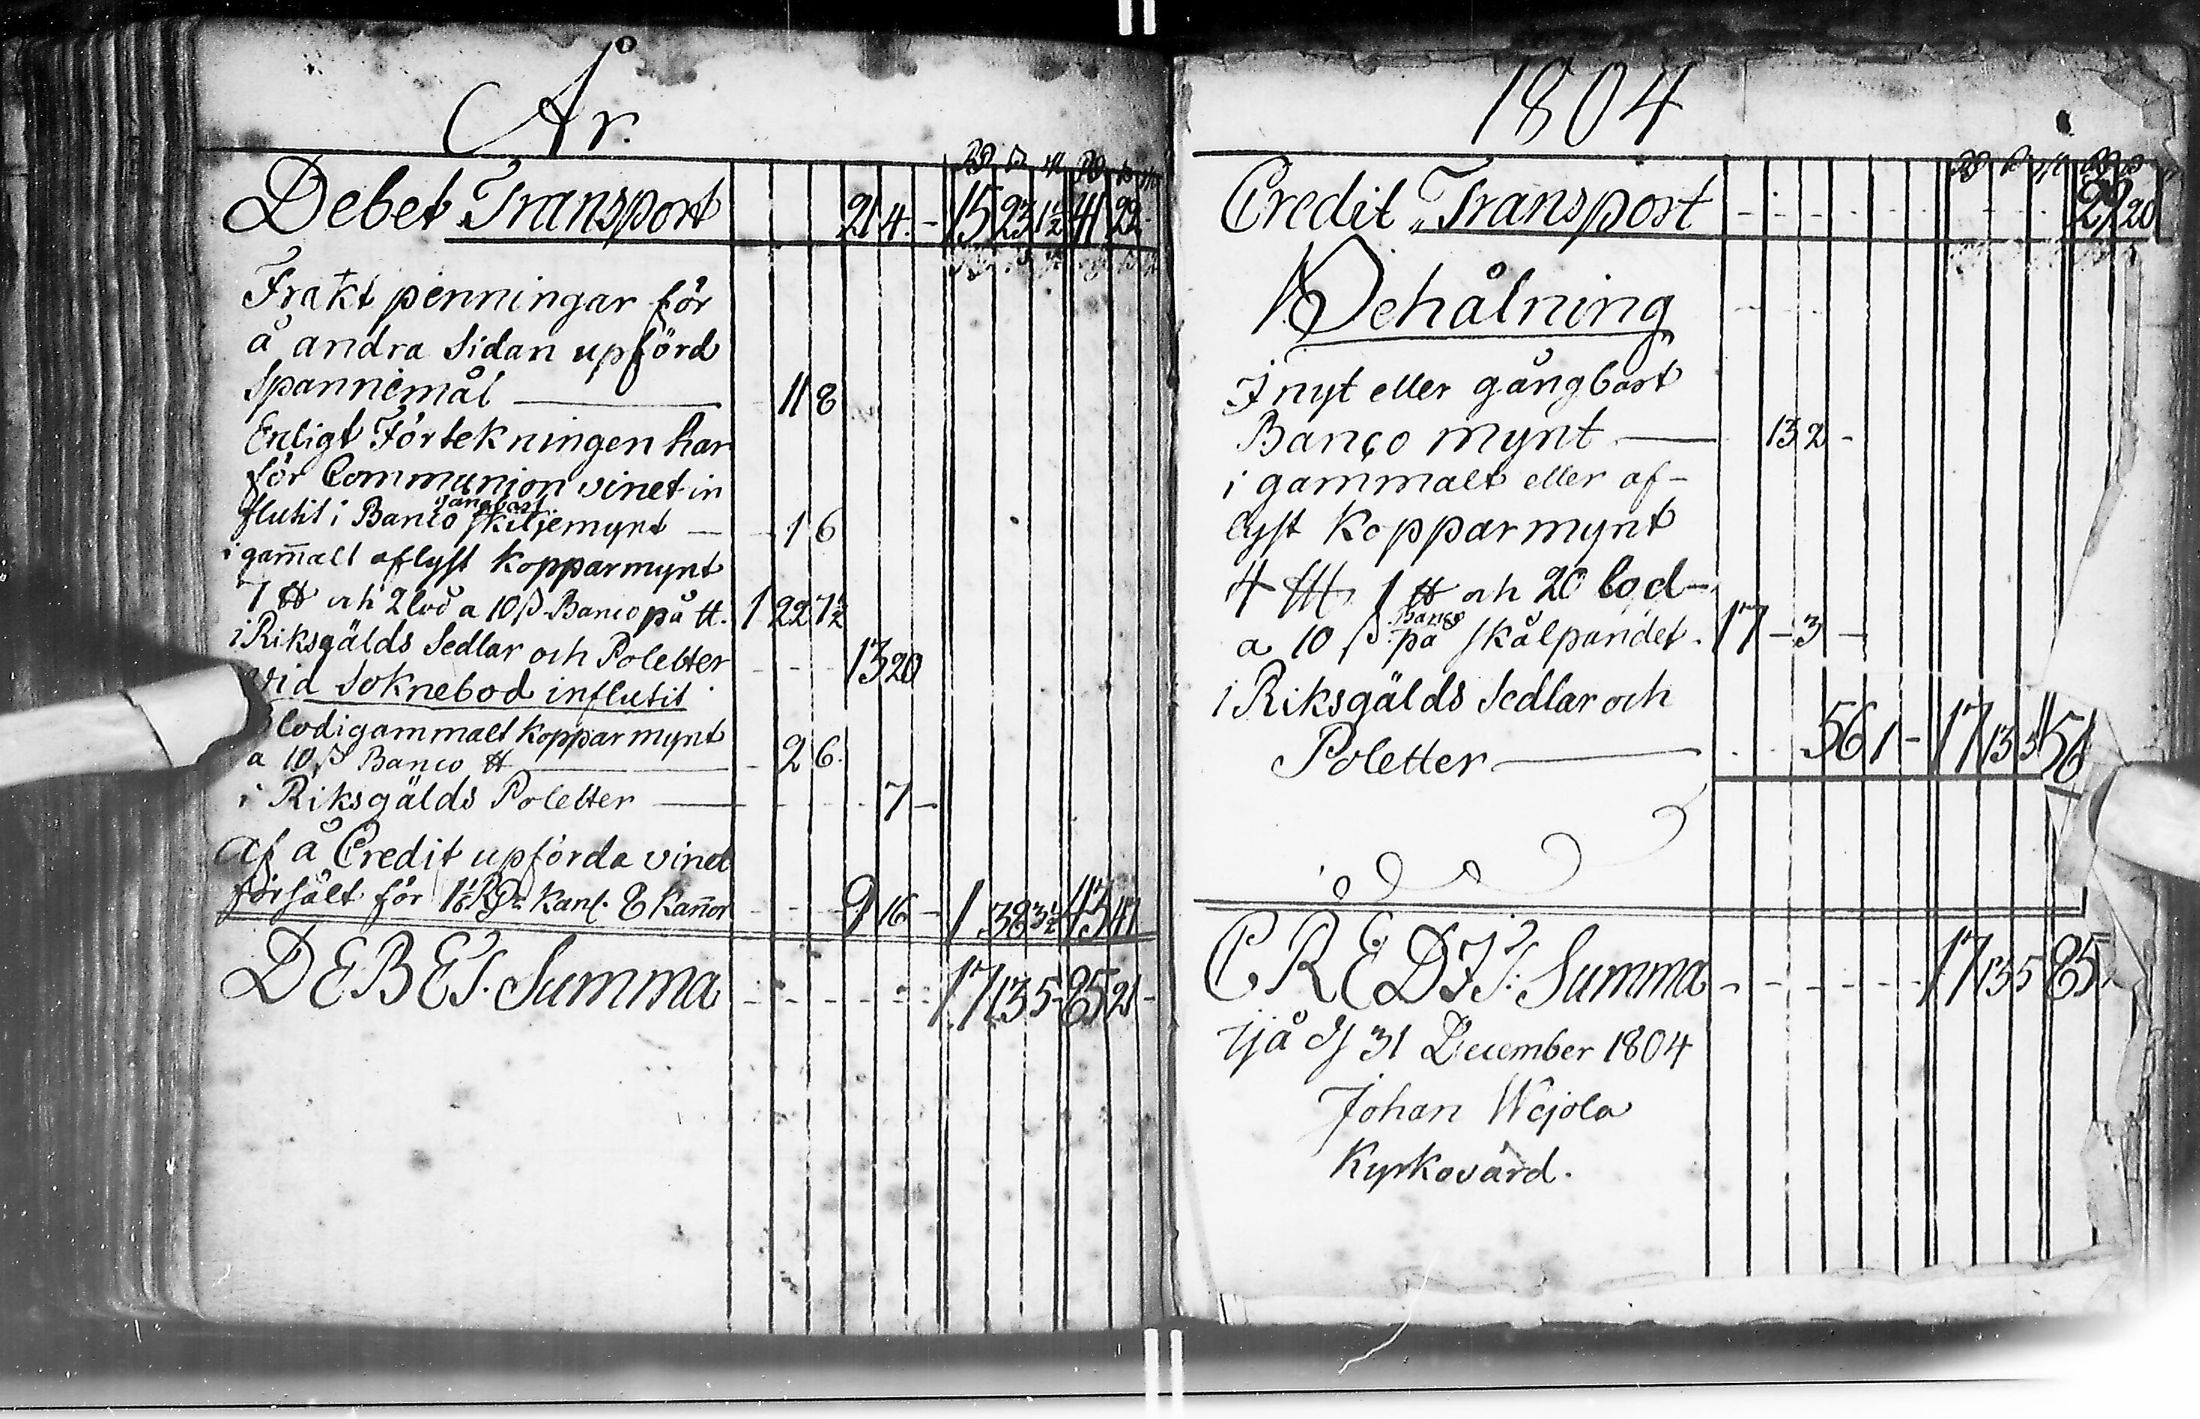 År.
Debet Transport 21 4. - 15 23 1½ 41 22
Frakt penningar för
å andra Sidan upförd
Spannemål — 11 8
Enligt Förtekningen har
för Communion vinet in
flutit i Banco gångbart Skiljemynt — - 1 6
i gam̄alt aflyst kopparmynt
7 ℔ och 2 lod a 10 ß Banco på ℔. 1 22 7½
i Riksgälds Sedlar och Poletter - - - 13 20
vid Soknebod influtit
lod i gammalt kopparmynt
a 10 ß Banco ℔ — - 2 6.
i Riksgälds Poletter — - - - 7 -
af å Credit upförda vinet
försålt för 1⅙ RD: Kan̄. 8 Kan̄or - - - 9 16 - 1 38 3½ 43 47
DEBET. Summa - - - - - 17 13 5 - 85 21 -
1804
Credit Transport - - - - - - - - 29 20
Behålning
I nyt eller gångbart
Banco mynt — 13 2 -
i gammalt eller af-
lyst Kopparmynt
4 1 ℔ och 20 lod -
a 10 ß Banco på skålpundet. 17 - 3 -
i Riksgälds Sedlar och
Poletter — - - 56 1 - 17 13 5 56
CREDIT: Summa - - - - - - 17 13 5 85
31 December 1804
Johan Wejola
Kyrkovärd.